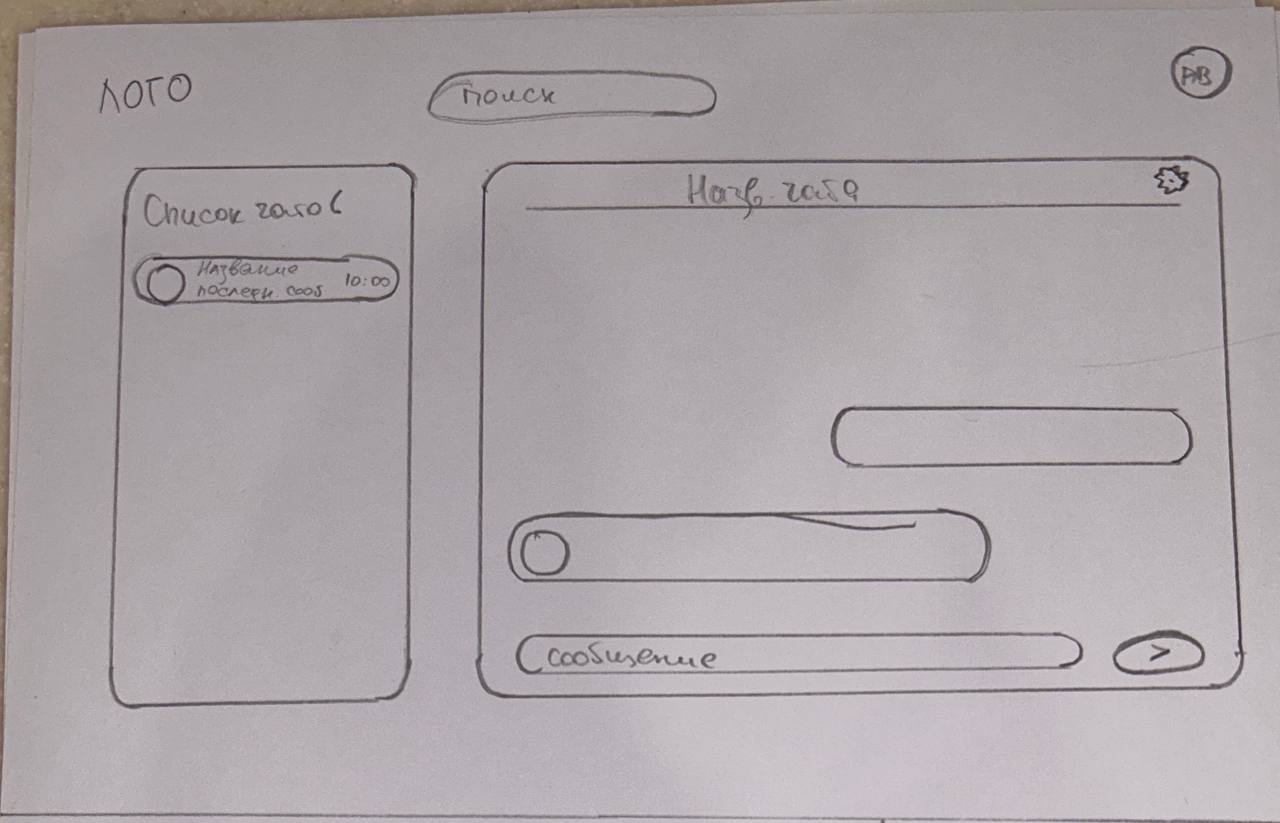 ЛОГО
поиск
АВ
Список чатов
Название
последн. сооб.
10:00
Назв. чата
сообщение
>